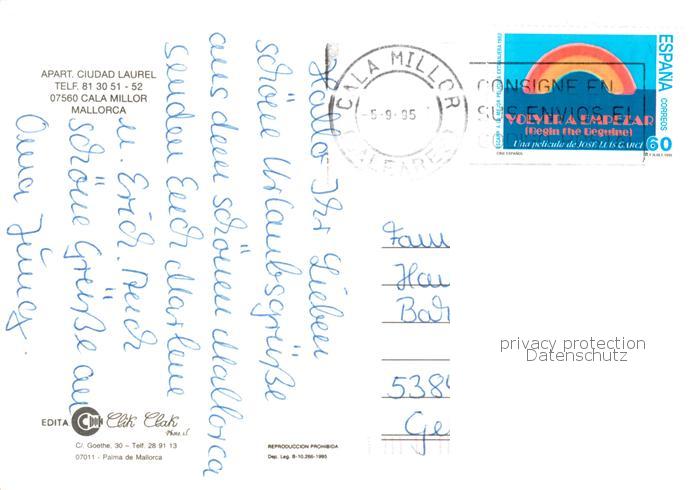 APART. CIUDAD LAUREL
TELF. 81 30 51 - 52
07560 CALA MILLOR
MALLORCA
Hallo Ihr Lieben
schöne Urlaubsgrüße
aus dem schönen Mallorca
senden Euch Marlene
u. Erich. Auch
schöne Grüße an
Oma
EDITA Clik Clak
C/. Goethe, 30 – Telf. 28 91 13
07011 - Palma de Mallorca
REPRODUCCION PROHIBIDA
Dep. Leg. B-10.266-1995
CALA MILLOR
-5-9-95
BALEARES
CONSIGNE EN
SUS ENVIOS EL
ESPAÑA
CORREOS
VOLVER A EMPEZAR
(Begin the Beguine)
Una película de JOSÉ LUIS GARCI
60
CINE ESPAÑOL
Fam
Hau
Bar
privacy protection
Datenschutz
538
Ge